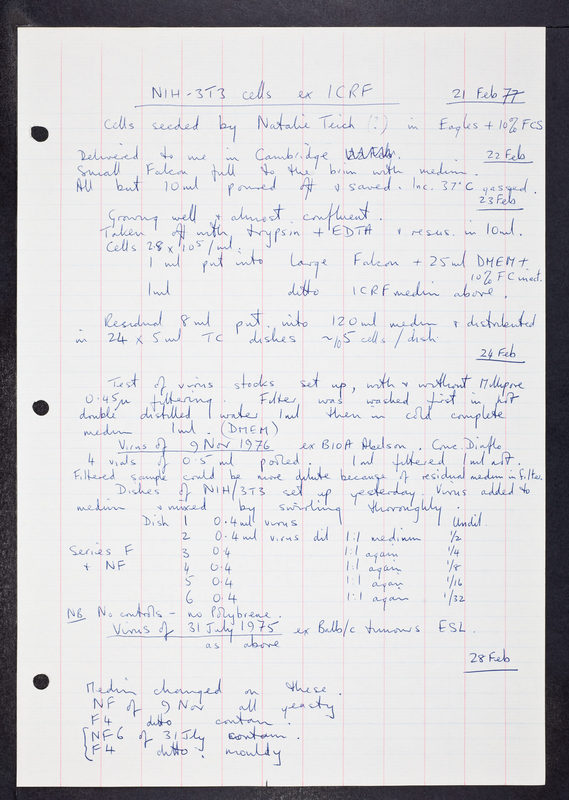 NIH-3T3 cells ex ICRF 21 Feb 77
Cells seeded by Natalie Teich (?) in Eagles + 10% FCS
22 Feb
Delivered to me in Cambridge
Small Falcon full to the brim with medium.
All but 10 ml poured off & saved. Inc. 37°C gassed.
23 Feb
Growing well & almost confluent.
Taken off with trypsin + EDTA & resus. in 10ml.
Cells 28 x 10⁵/ml.
1 ml put into large Falcon + 25 ml DMEM +
10% FC inact.
1ml ditto ICRF medium above.
Residual 8 ml put into 120 ml medium & distributed
in 24 x 5 ml TC dishes ~10⁵ cells/dish
24 Feb
Test of virus stocks set up, with & without Millipore
0.45µ filtering. Filter was washed first in hot
double distilled water 1ml then in cold complete
medium 1ml. (DMEM)
Virus of 9 Nov 1976 ex B10A Abelson. Conc. Diaflo
4 vials of 0.5 ml pooled. 1ml filtered 1ml not.
Filtered sample could be more dilute because of residual medium in filter.
Dishes of NIH/3T3 set up yesterday. Virus added to
medium & mixed by swirling thoroughly.
Dish 1 0.4 ml virus Undil.
2 0.4 ml virus dil 1:1 medium 1/2
Series F 3 0.4 1:1 again 1/4
& NF 4 0.4 1:1 again 1/8
5 0.4 1:1 again 1/16
6 0.4 1:1 again 1/32
NB No controls - no Polybrene.
Virus of 31 July 1975 ex Balb/c tumours ESL.
as above
28 Feb
Medium changed on these.
NF of 9 Nov all yeasty
F4 ditto contam.
NF6 of 31 Jly contam.
F4 ditto . mouldy